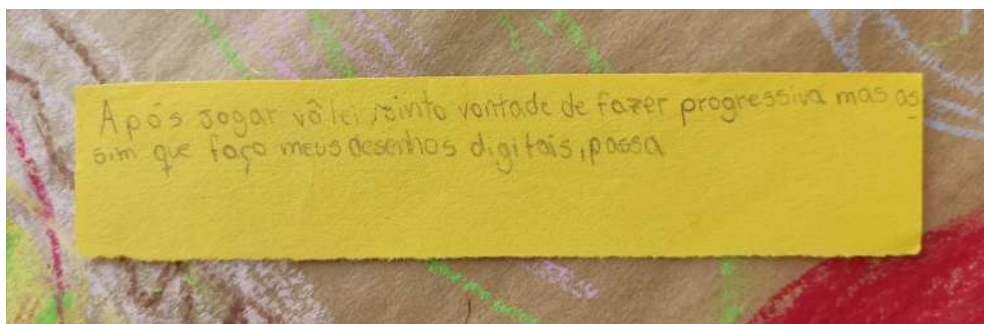 Após jogar vôlei, sinto vontade de fazer progressiva mas as
sim que faço meus desenhos digitais, passa